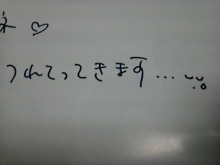 ネ♡
つれてってきます…